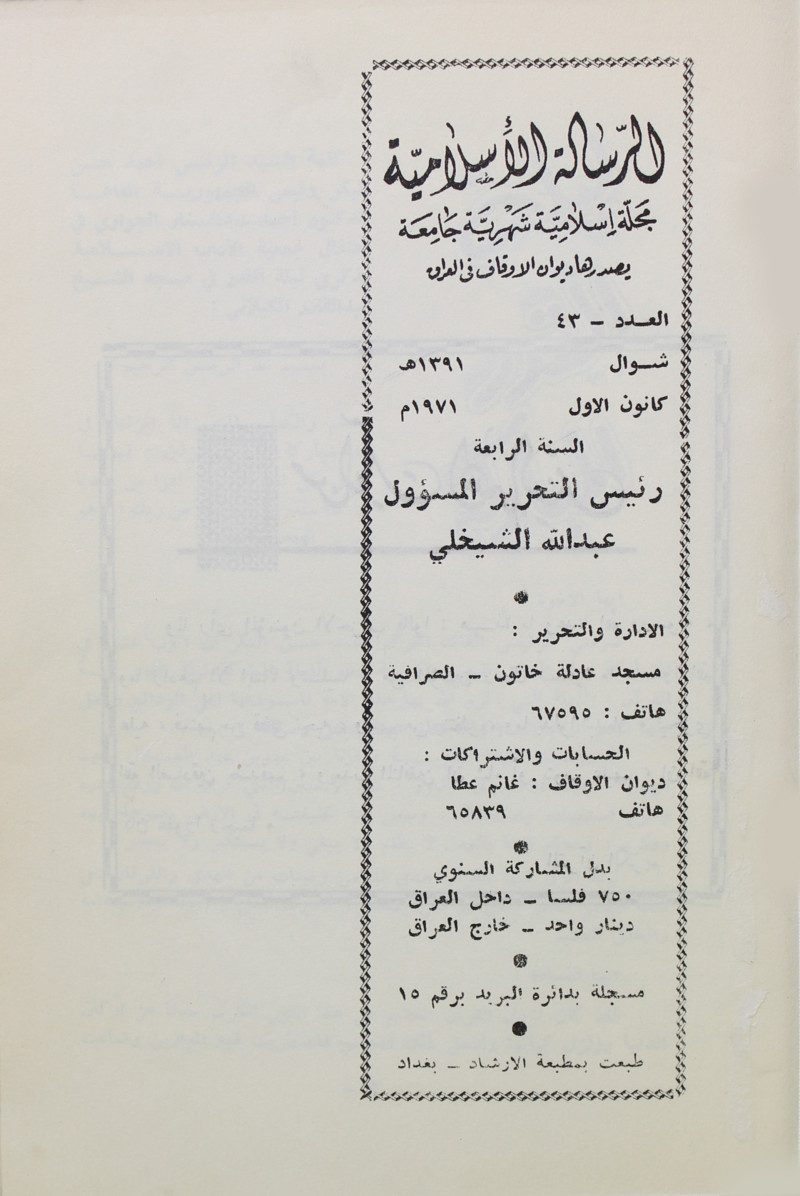 الرسالة الأسلامية
مجلة إسلامية شهرية جامعة
يصدرها ديوان الاوقاف في العراق
العدد – ٤٣
شوال ١٣٩١هـ
كانون الاول ١٩٧١م
السنة الرابعة
رئيس التحرير المسؤول
عبدالله الشيخلي
الادارة والتحرير :
مسجد عادلة خاتون – الصرافية
هاتف : ٦٧٥٩٥
الحسابات والاشتراكات :
ديوان الاوقاف : غانم عطا
هاتف ٦٥٨٣٩
بدل المشاركة السنوي
٧٥٠ فلسا – داخل العراق
دينار واحد – خارج العراق
مسجلة بدائرة البريد برقم ١٥
طبعت بمطبعة الارشاد – بغداد